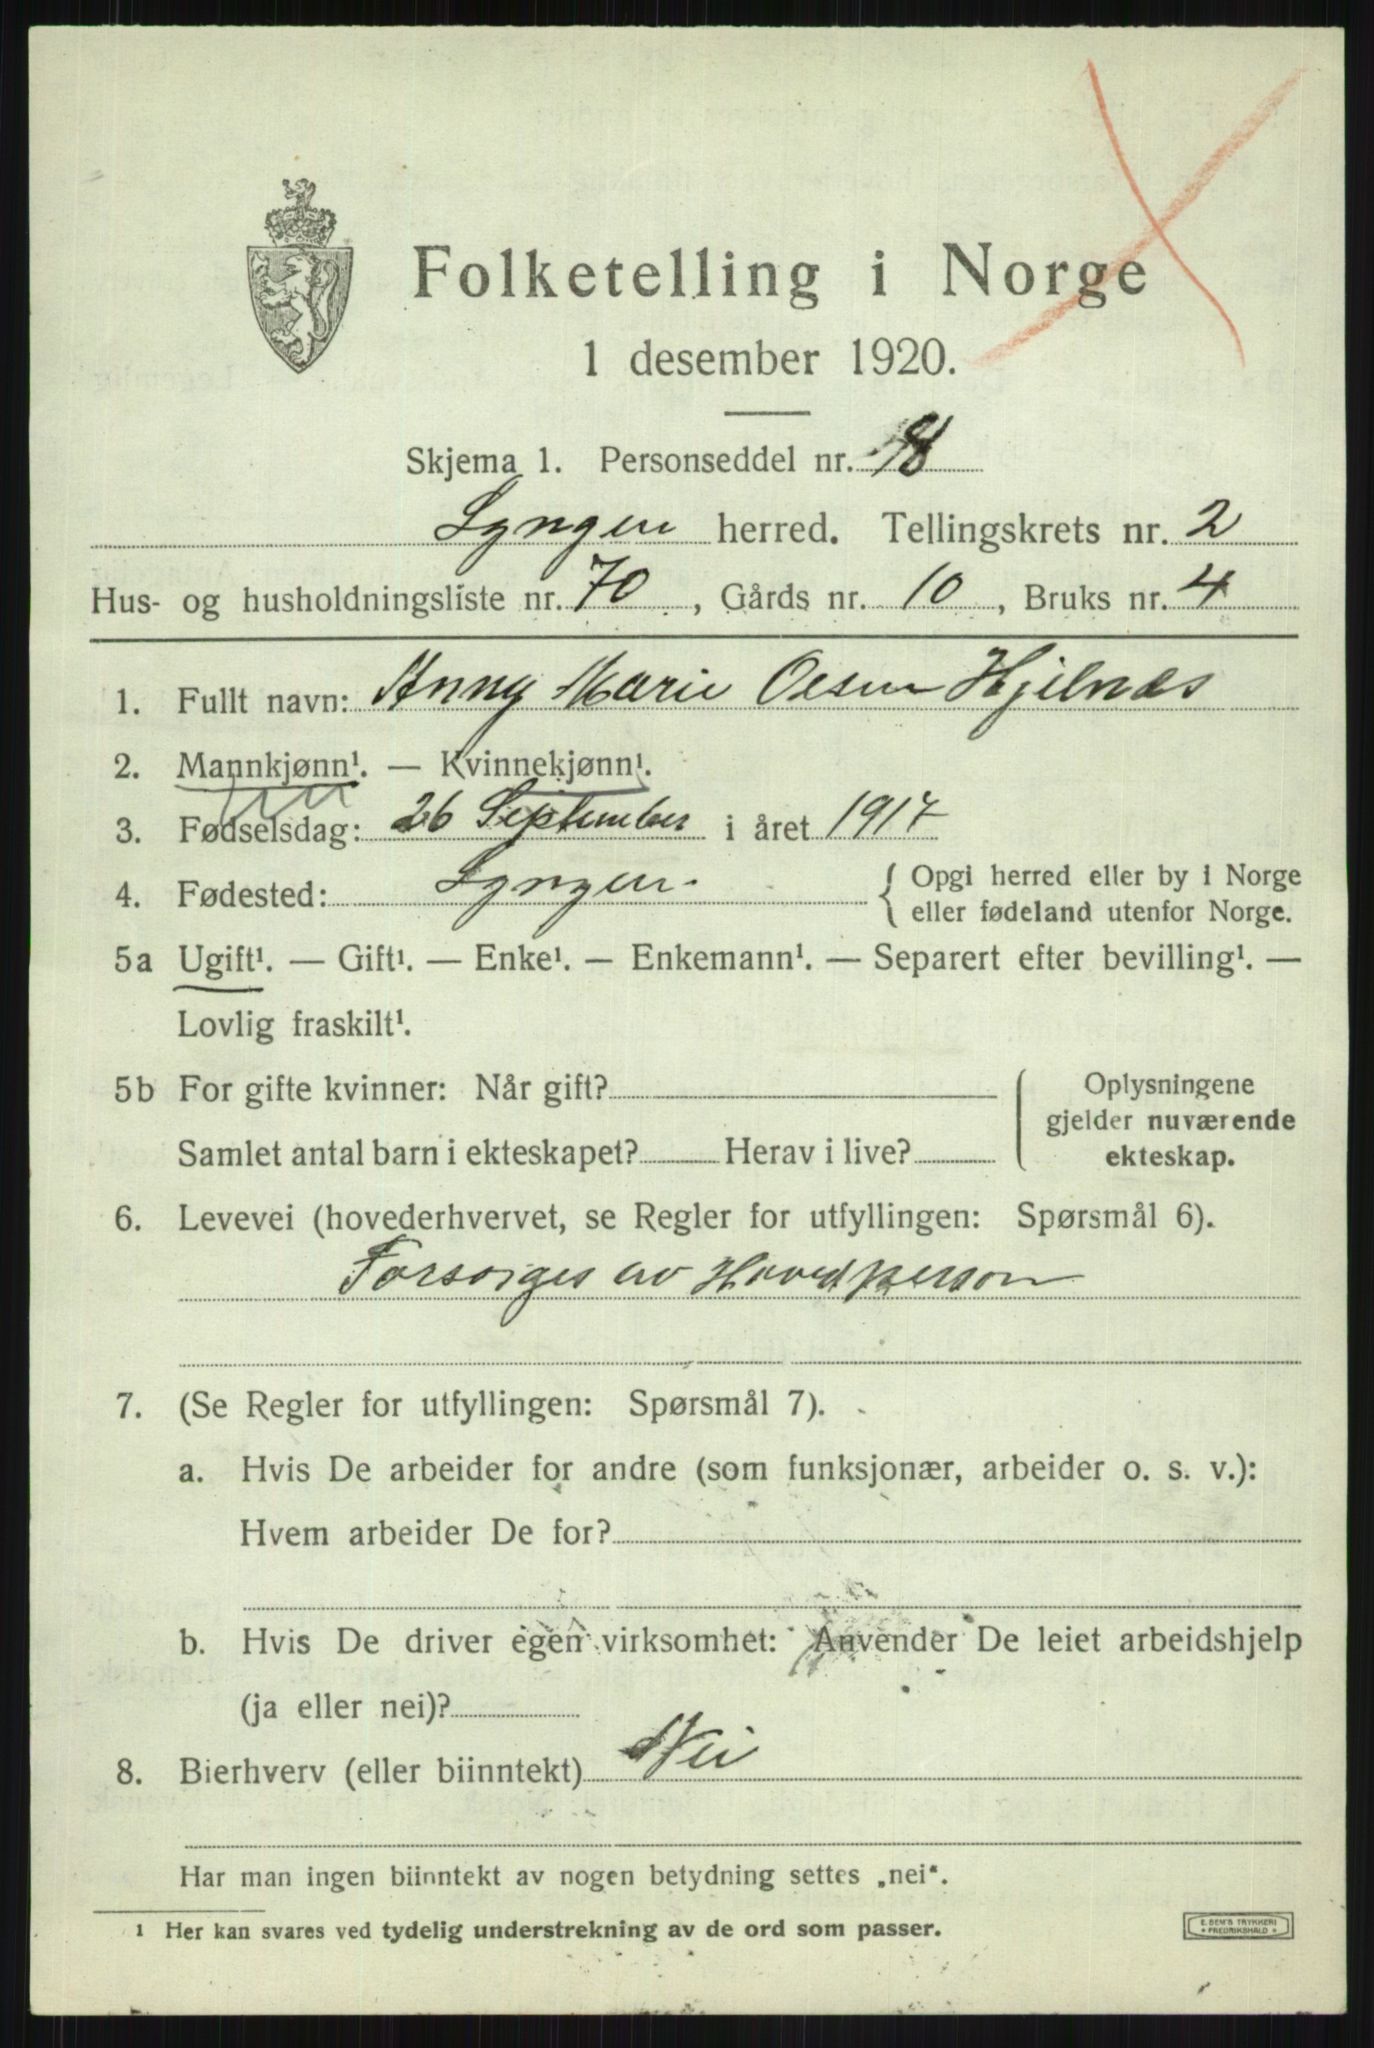 Folketelling i Norge
1 desember 1920.
Skjema 1. Personseddel nr. 8
Lyngen herred. Tellingskrets nr. 2
Hus- og husholdningsliste nr. 70, Gårds nr. 10, Bruks nr. 4
1. Fullt navn: Anny Marie Olsen Hjelnæs
2. Mannkjønn¹. — Kvinnekjønn¹.
3. Fødselsdag: 26 September i året 1917
4. Fødested: Lyngen. { Opgi herred eller by i Norge
eller fødeland utenfor Norge.
5a Ugift¹. — Gift¹. — Enke¹. — Enkemann¹. — Separert efter bevilling¹. —
Lovlig fraskilt¹.
5b For gifte kvinner: Når gift?
Samlet antal barn i ekteskapet? Herav i live?
Oplysningene
gjelder nuværende
ekteskap.
6. Levevei (hovederhvervet, se Regler for utfyllingen: Spørsmål 6).
Forsørges av Hovedperson
7. (Se Regler for utfyllingen: Spørsmål 7).
a. Hvis De arbeider for andre (som funksjonær, arbeider o. s. v.):
Hvem arbeider De for?
b. Hvis De driver egen virksomhet: Anvender De leiet arbeidshjelp
(ja eller nei)?
8. Bierhverv (eller biinntekt) Nei
Har man ingen biinntekt av nogen betydning settes „nei“.
1 Her kan svares ved tydelig understrekning av de ord som passer.
E. SEM'S TRYKKERI
* FREDRIKSHALD *